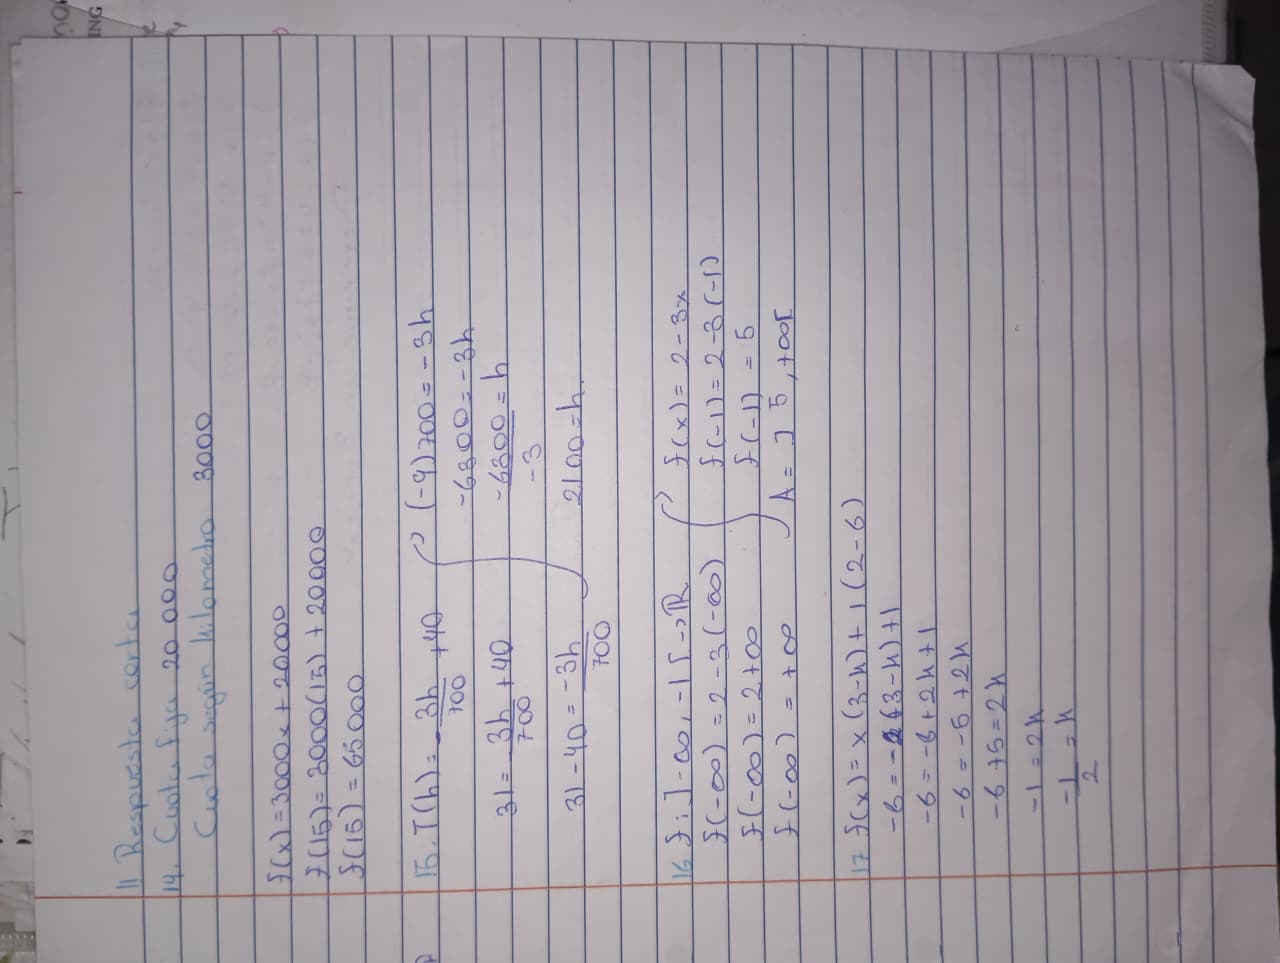 II Respuesta corta
14. Cuota fija 20 000
Cuota según kilometro 3000
f(x) = 3000x + 20000
f(15) = 3000(15) + 20000
f(15) = 65000
15. T(h) = -3h/700 + 40
31 = -3h/700 + 40
31 - 40 = -3h/700
(-9)700 = -3h
-6300 = -3h
-6300/-3 = h
2100 = h.
16 f: ]-∞, -1[ → ℝ
f(-∞) = 2 - 3(-∞)
f(-∞) = 2 + ∞
f(-∞) = +∞
f(x) = 2 - 3x
f(-1) = 2 - 3(-1)
f(-1) = 5
A = ]5, +∞[
17 f(x) = x(3-k) + 1 (2-6)
-6 = -2(3-k) + 1
-6 = -6 + 2k + 1
-6 = -5 + 2k
-6 + 5 = 2k
-1 = 2k
-1/2 = k